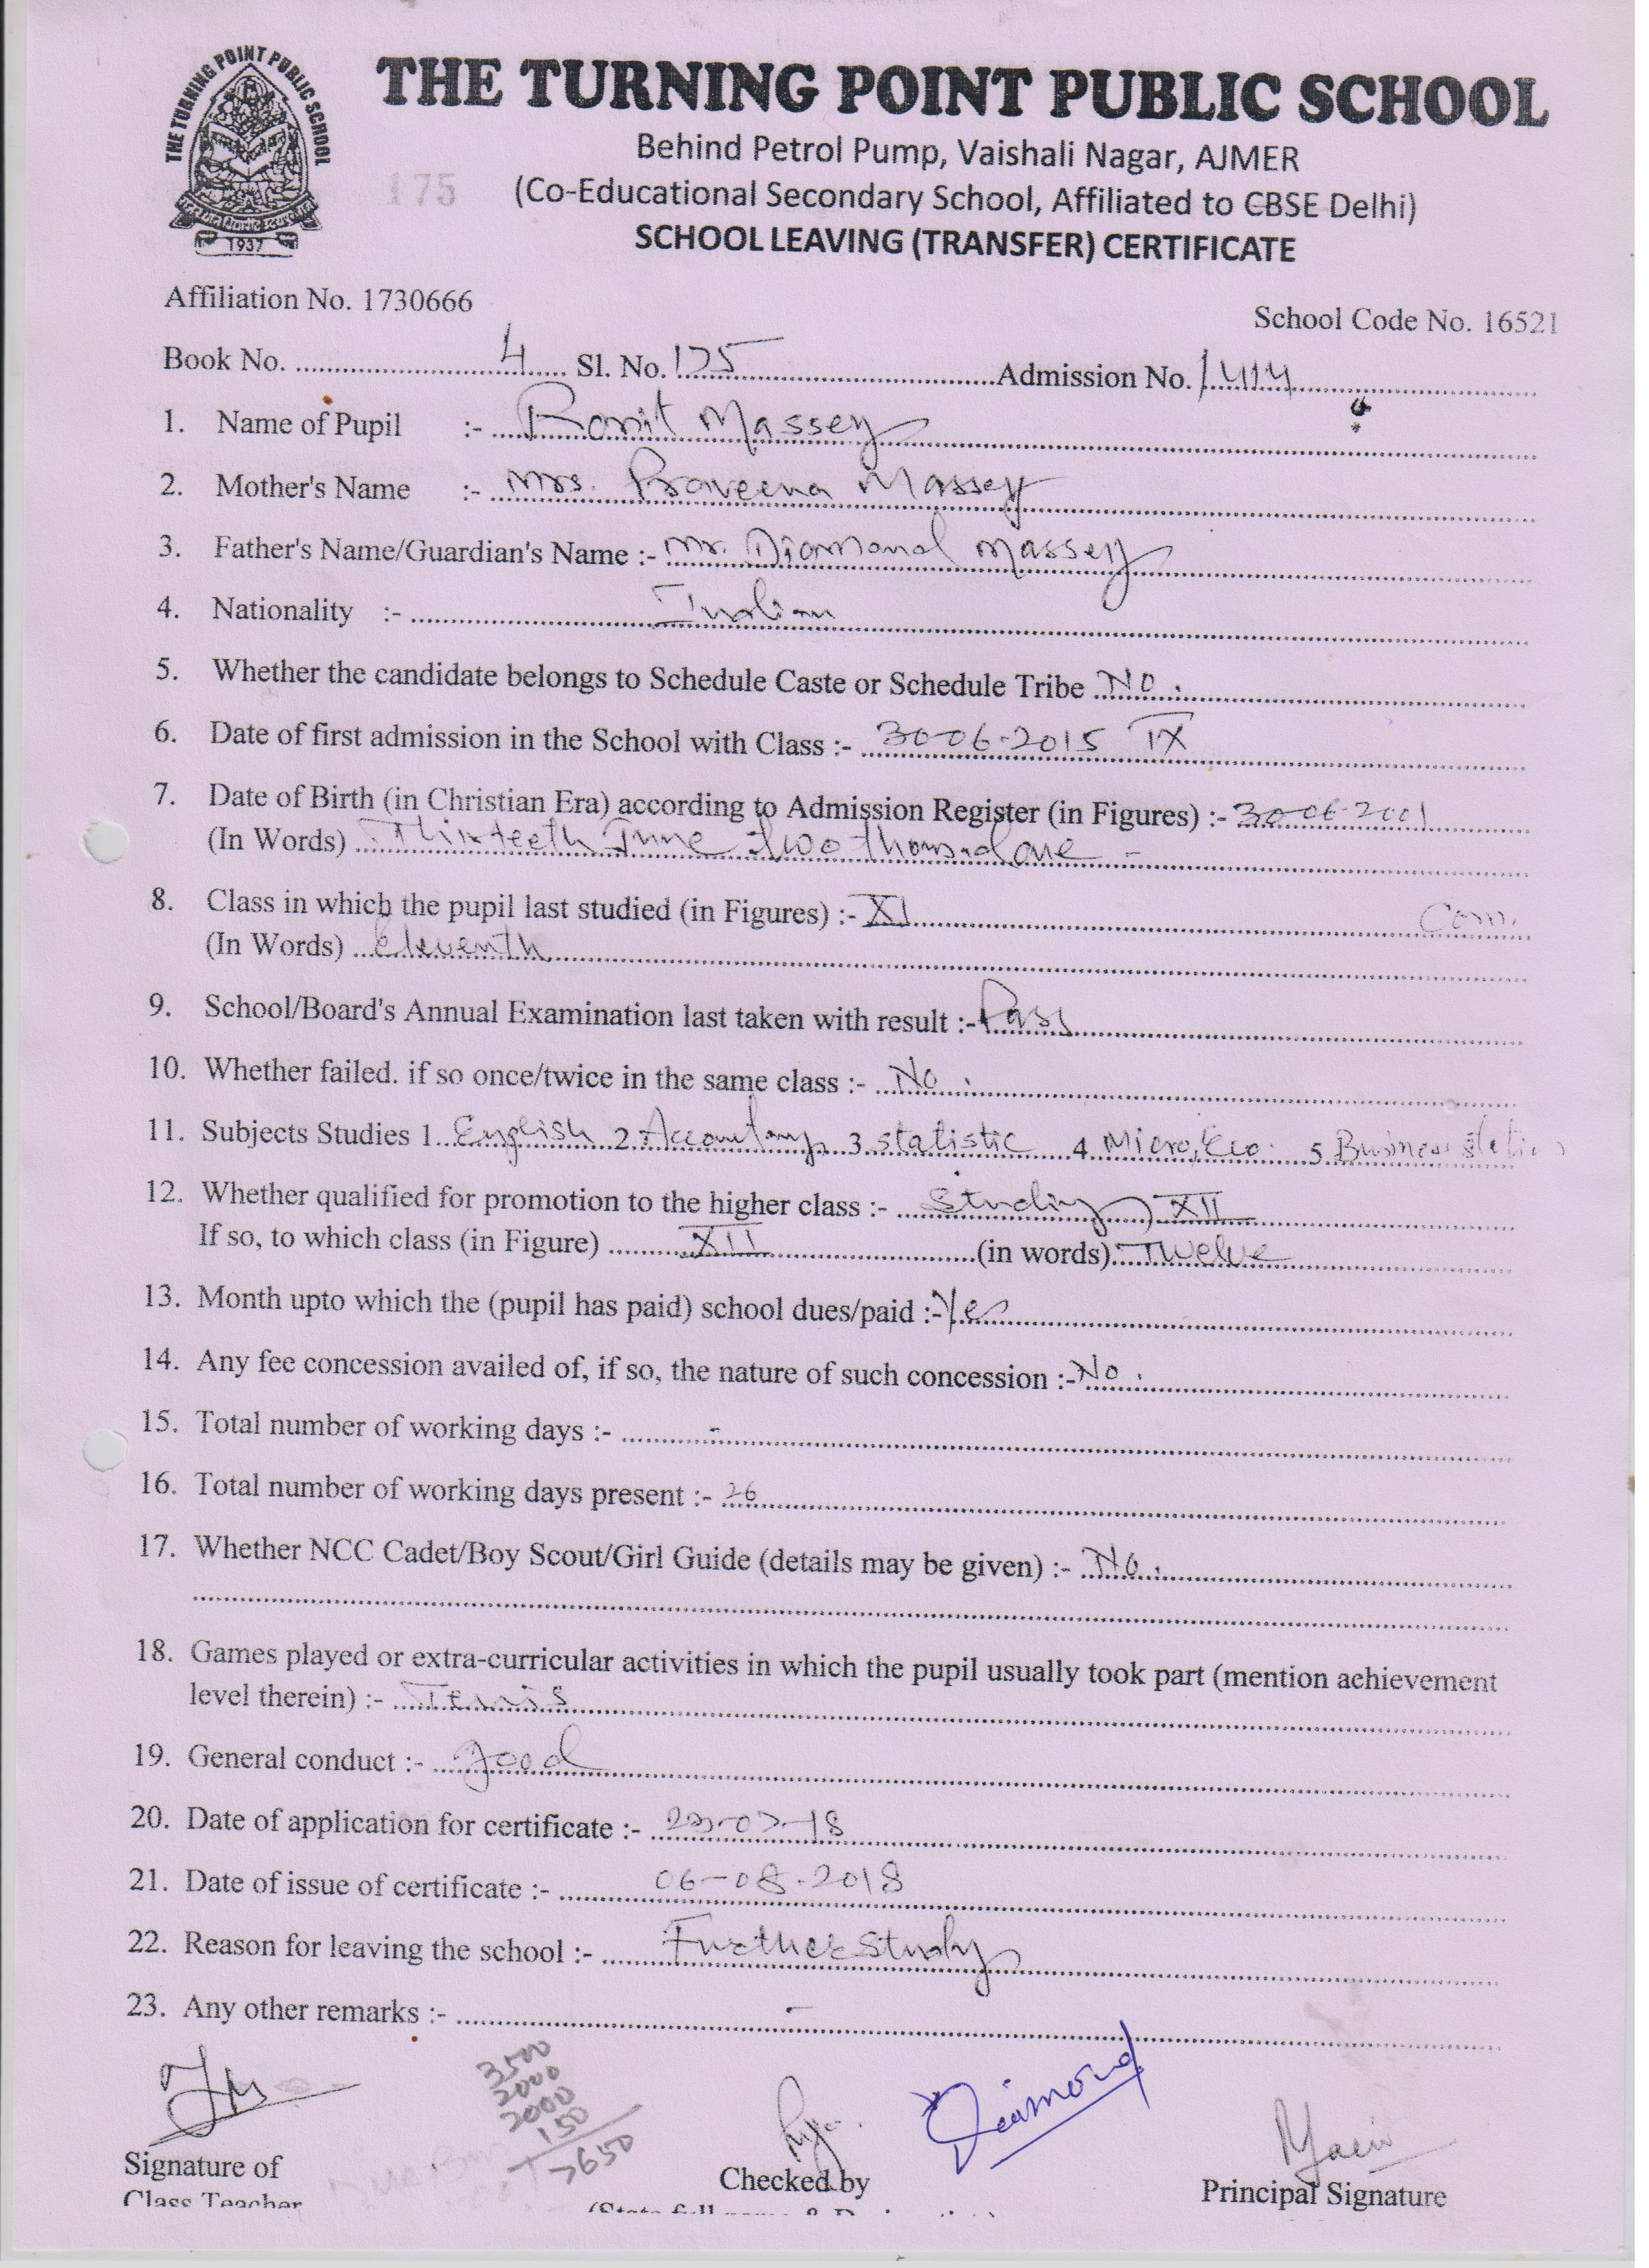 THE TURNING POINT PUBLIC SCHOOL
1937
THE TURNING POINT PUBLIC SCHOOL
Behind Petrol Pump, Vaishali Nagar, AJMER
175
(Co-Educational Secondary School, Affiliated to CBSE Delhi)
SCHOOL LEAVING (TRANSFER) CERTIFICATE
Affiliation No. 1730666
School Code No. 16521
Book No. 4 Sl. No. 175 Admission No. 1414
1. Name of Pupil :- Ronit Massey
2. Mother's Name :- Mrs. Praveena Massey
3. Father's Name/Guardian's Name :- Mr. Diamond Massey
4. Nationality :- Indian
5. Whether the candidate belongs to Schedule Caste or Schedule Tribe No.
6. Date of first admission in the School with Class :- 30-06-2015 IX
7. Date of Birth (in Christian Era) according to Admission Register (in Figures) :- 30-06-2001
(In Words) Thirteeth June two thousand one -
8. Class in which the pupil last studied (in Figures) :- XI Com.
(In Words) Eleventh
9. School/Board's Annual Examination last taken with result :- Pass
10. Whether failed. if so once/twice in the same class :- No.
11. Subjects Studies 1. English 2. Accountancy 3. statistic 4. Micro, Eco. 5. Business
12. Whether qualified for promotion to the higher class :- Studing XII
If so, to which class (in Figure) XII (in words) Twelve
13. Month upto which the (pupil has paid) school dues/paid :- Yes
14. Any fee concession availed of, if so, the nature of such concession :- No.
15. Total number of working days :- -
16. Total number of working days present :- 26
17. Whether NCC Cadet/Boy Scout/Girl Guide (details may be given) :- No.
18. Games played or extra-curricular activities in which the pupil usually took part (mention achievement
level therein) :- Tennis
19. General conduct :- good
20. Date of application for certificate :-
21. Date of issue of certificate :- 06-08-2018
22. Reason for leaving the school :- Further Study
23. Any other remarks :- -
3500
2000
2000
150
7650
Diamond
Signature of
Class Teacher
Checked by
Principal Signature